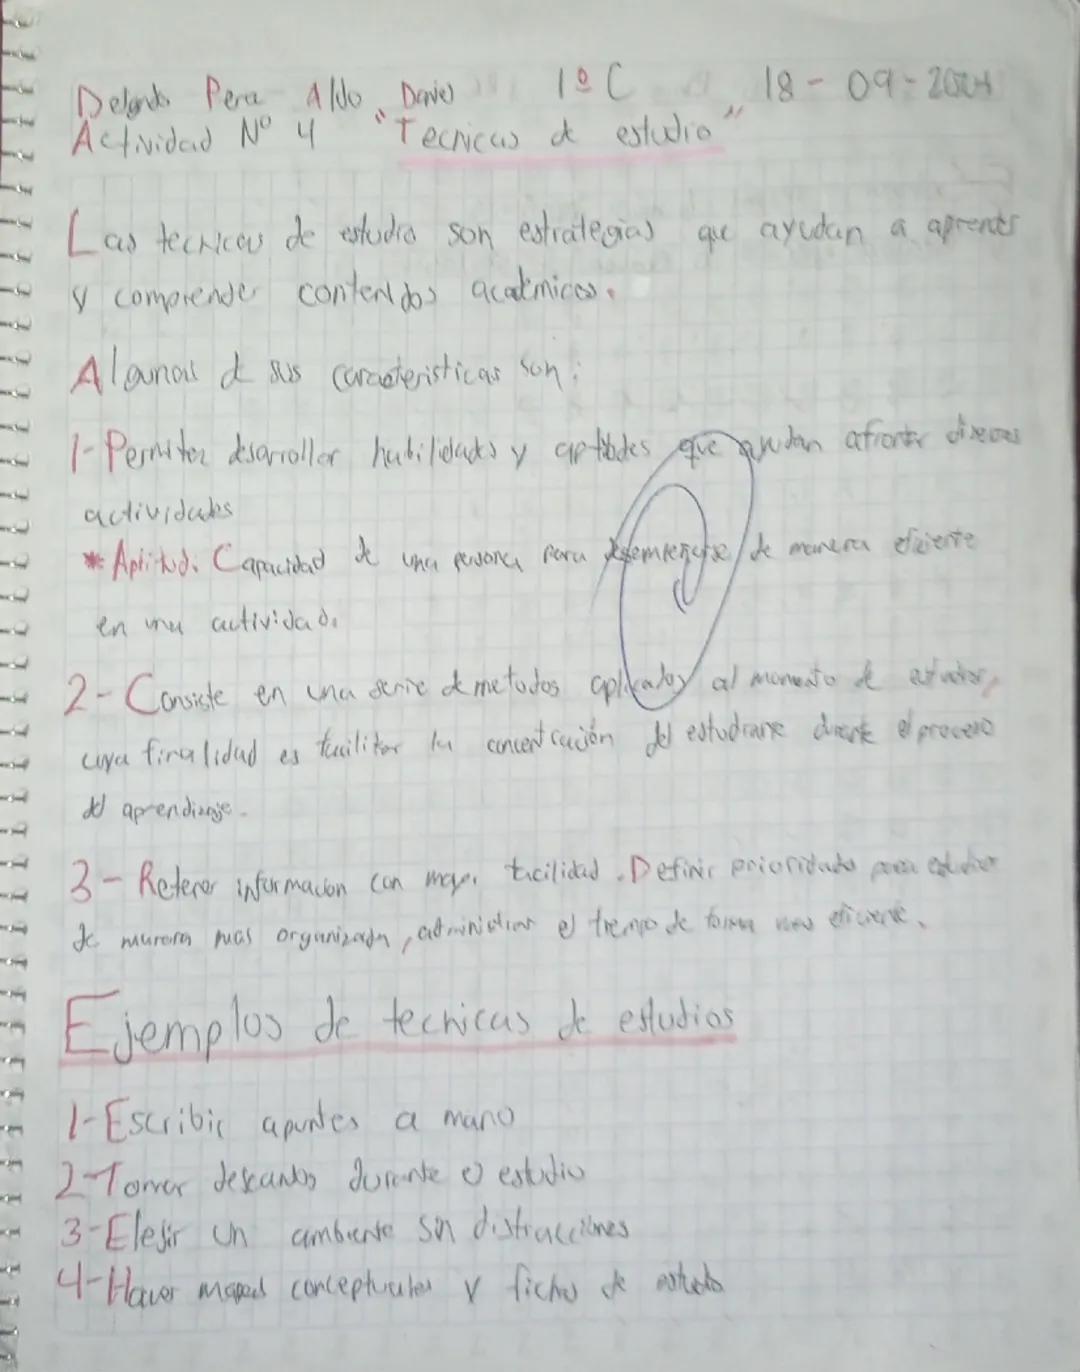 Delgado Pera Aldo David 1º C 18-09-2024
Actividad Nº 4 "Tecnicas de estudio"
Las tecnicas de estudio son estrategias que ayudan a aprender
y comprender contenidos academicos.
Algunas de sus caracteristicas son:
1-Permiten desarrollar habilidades y aptitudes que ayudan afrontar diversas
actividades
* Aptitud. Capacidad de una persona para desempeñarse de manera eficiente
en una actividad.
2-Consiste en una serie de metodos aplicados al momento de estudiar,
cuya finalidad es facilitar la concentración del estudiante durante el proceso
del aprendizaje.
3-Retener informacion con mayor facilidad. Definir prioridades para estudiar
de manera mas organizada, administrar el tiempo de forma mas eficiente.
Ejemplos de tecnicas de estudios
1-Escribir apuntes a mano
2-Tomar descansos durante el estudio
3-Elejir un ambiente sin distracciones
4-Hacer mapas conceptuales y fichas de estudio